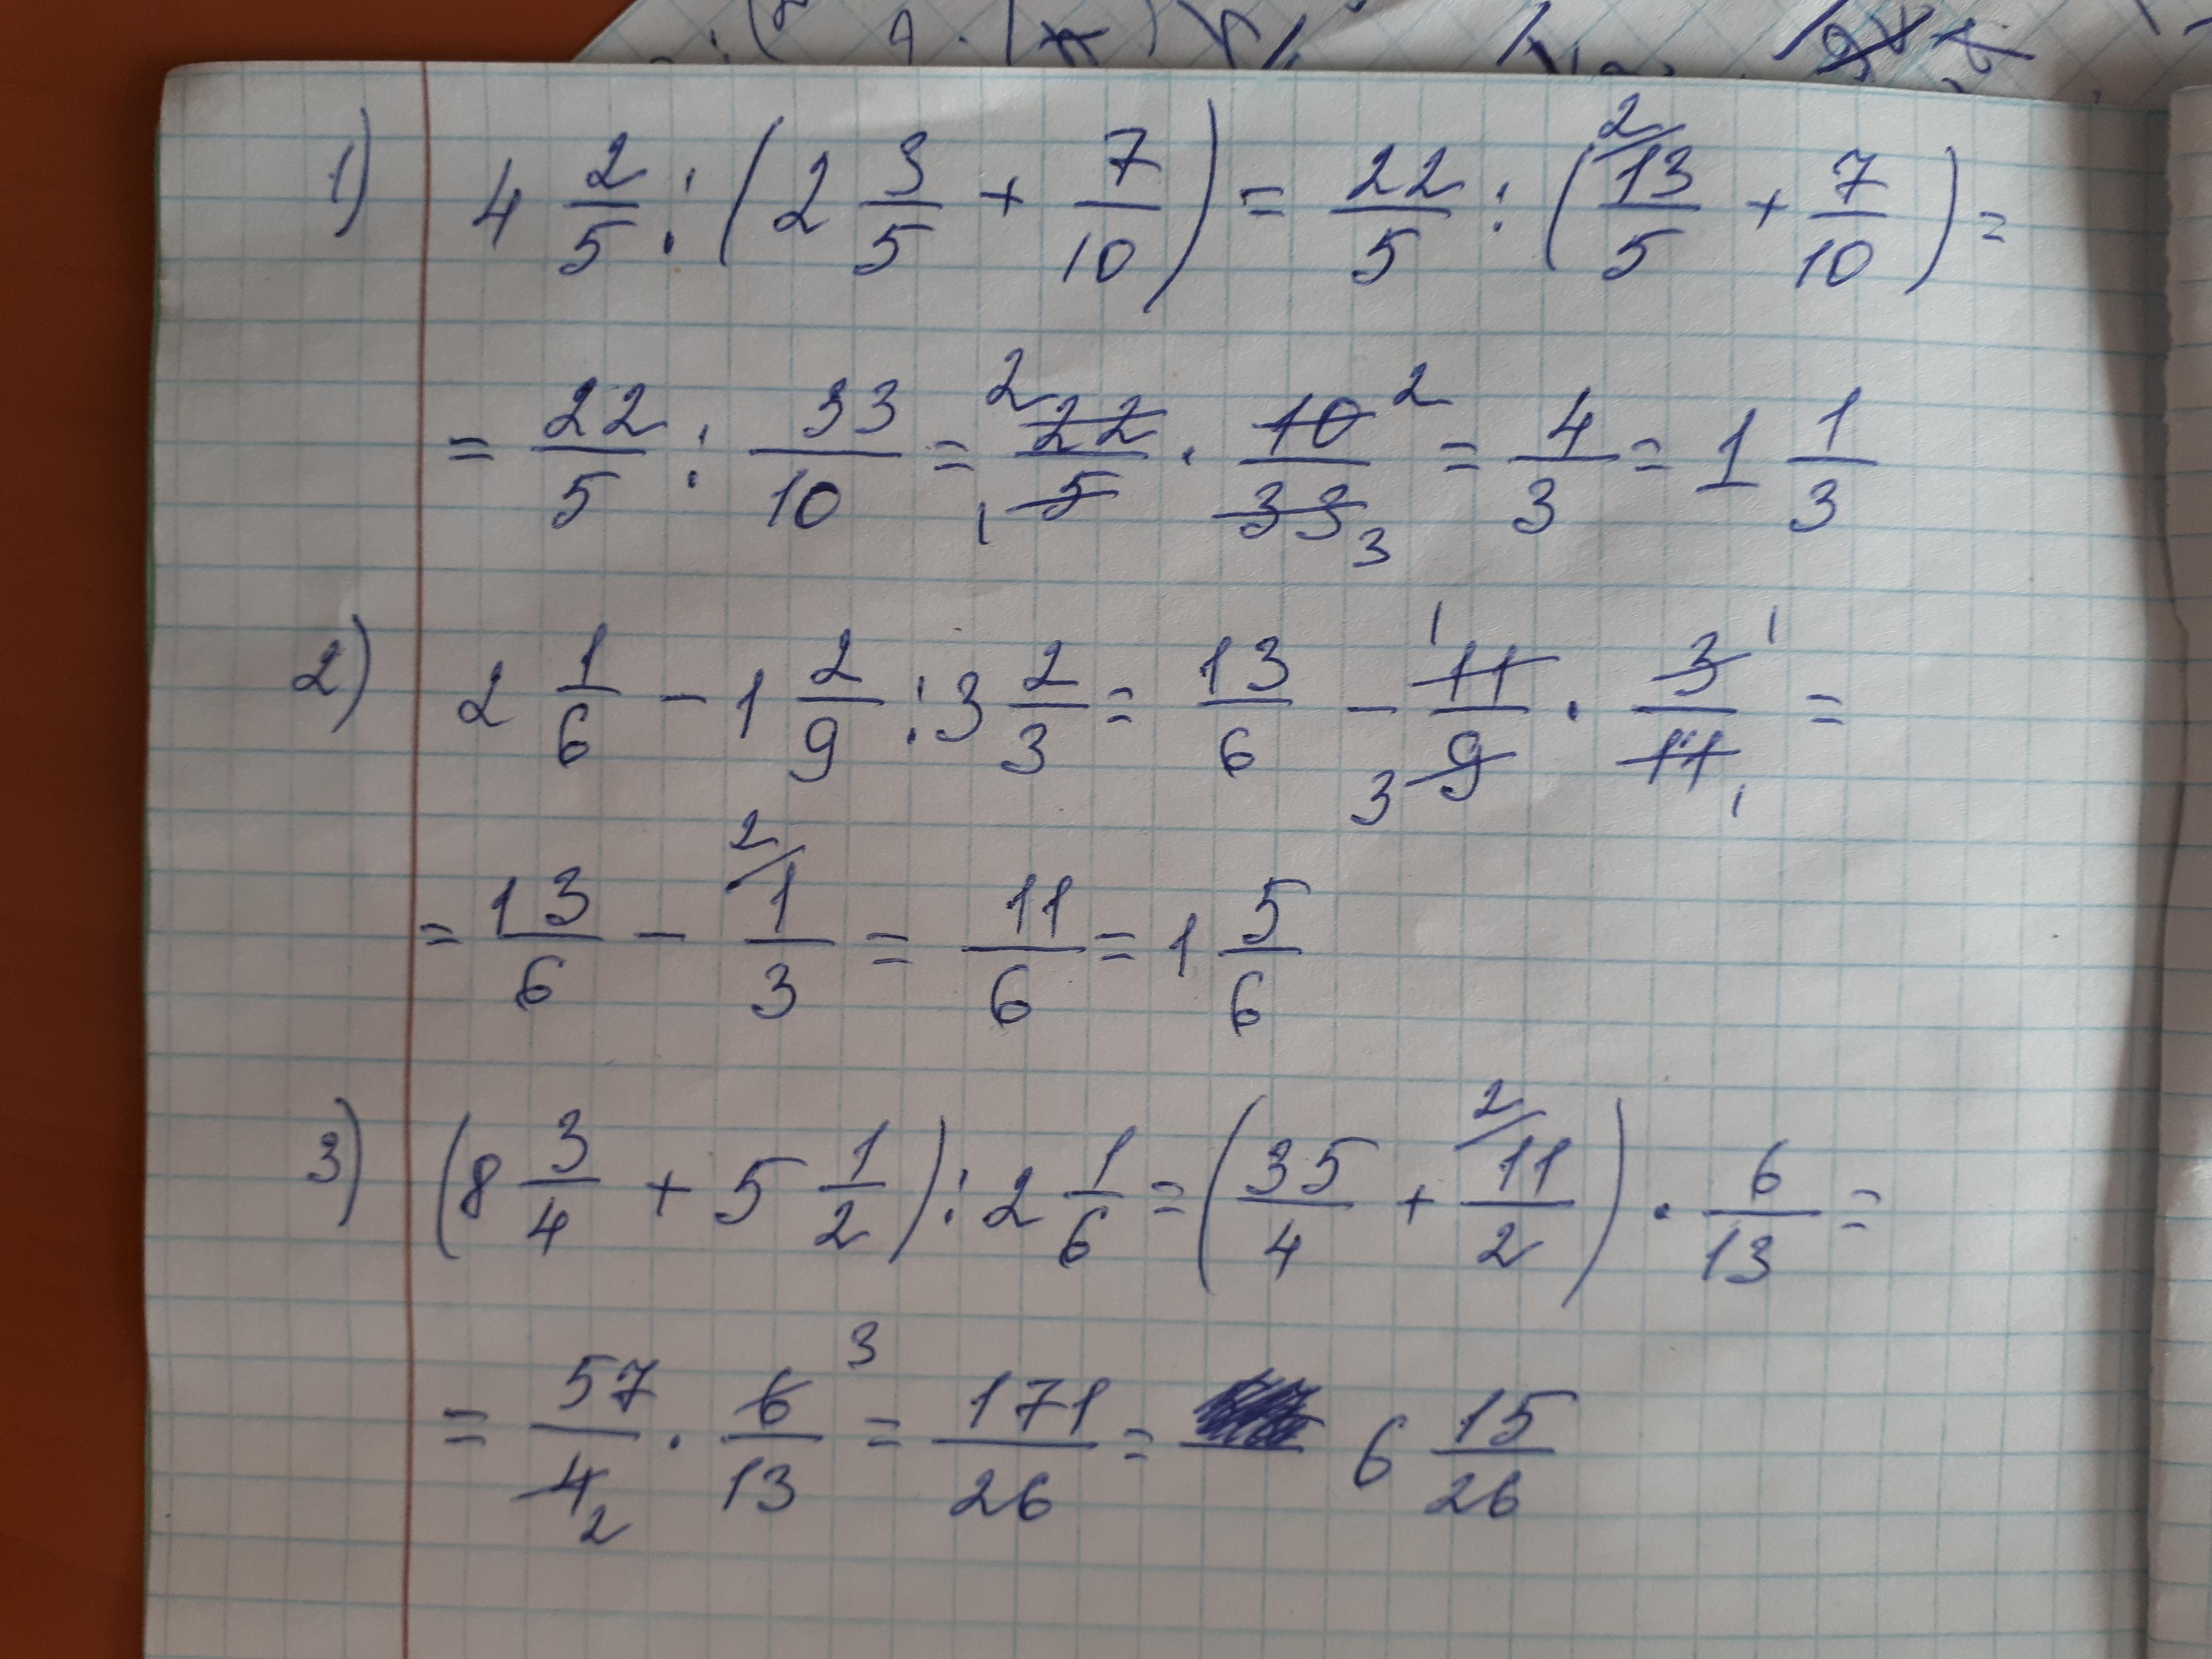 1) 4 2/5 : (2 3/5 + 7/10) = 22/5 : (2/ 13/5 + 7/10) =
= 22/5 : 33/10 = 2 22/5 1 · 10/33 2 3 = 4/3 = 1 1/3
2) 2 1/6 - 1 2/9 : 3 2/3 = 13/6 - 1 11/9 3 · 3/11 1 1 =
= 13/6 - 2/ 1/3 = 11/6 = 1 5/6
3) (8 3/4 + 5 1/2) : 2 1/6 = (35/4 + 2/ 11/2) · 6/13 =
= 57/4 2 · 6/13 3 = 171/26 = 6 15/26